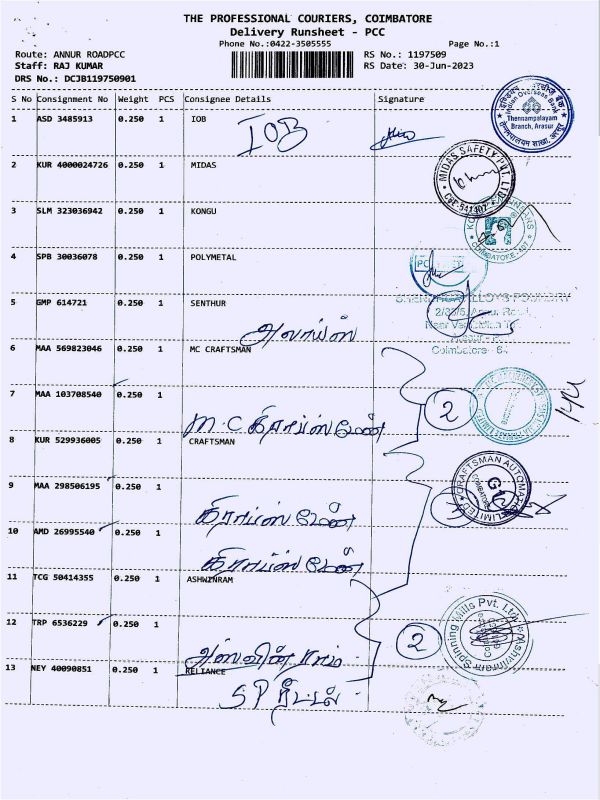 THE PROFESSIONAL COURIERS, COIMBATORE
Delivery Runsheet - PCC
Phone No.:0422-3505555 Page No.:1
Route: ANNUR ROADPCC RS No.: 1197509
Staff: RAJ KUMAR RS Date: 30-Jun-2023
DRS No.: DCJB119750901
S No Consignment No Weight PCS Consignee Details Signature
1 ASD 3485913 0.250 1 IOB
IOB
Indian Overseas Bank
Thennampalayam
Branch, Arasur
2 KUR 4000024726 0.250 1 MIDAS
MIDAS SAFETY PVT. LTD
3 SLM 323036942 0.250 1 KONGU
4 SPB 30036078 0.250 1 POLYMETAL
5 GMP 614721 0.250 1 SENTHUR
அலாய்ஸ்
6 MAA 569823046 0.250 1 MC CRAFTSMAN
7 MAA 103708540 0.250 1
M.C கிராப்ஸ்மேன்
2
8 KUR 529936005 0.250 1 CRAFTSMAN
9 MAA 298506195 0.250 1
CRAFTSMAN AUTOMATION LIMITED
கிராப்ஸ்மேன்
10 AMD 26995540 0.250 1
கிராப்ஸ்மேன்
11 TCG 50414355 0.250 1 ASHWINRAM
12 TRP 6536229 0.250 1
அஸ்வின் ராம்
2
Ashwinram Spinning Mills Pvt. Ltd.
13 NEY 40090851 0.250 1 RELIANCE
SP ரீட்டல்